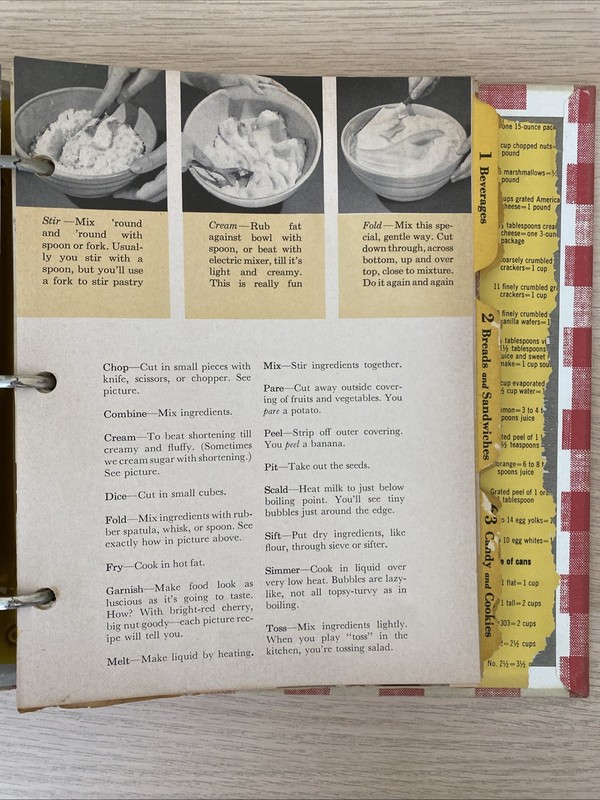 Stir—Mix 'round
and 'round with
spoon or fork. Usual-
ly you stir with a
spoon, but you'll use
a fork to stir pastry
Cream—Rub fat
against bowl with
spoon, or beat with
electric mixer, till it's
light and creamy.
This is really fun
Fold—Mix this spe-
cial, gentle way. Cut
down through, across
bottom, up and over
top, close to mixture.
Do it again and again
Chop—Cut in small pieces with
knife, scissors, or chopper. See
picture.
Combine—Mix ingredients.
Cream—To beat shortening till
creamy and fluffy. (Sometimes
we cream sugar with shortening.)
See picture.
Dice—Cut in small cubes.
Fold—Mix ingredients with rub-
ber spatula, whisk, or spoon. See
exactly how in picture above.
Fry—Cook in hot fat.
Garnish—Make food look as
luscious as it's going to taste.
How? With bright-red cherry,
big nut goody—each picture rec-
ipe will tell you.
Melt—Make liquid by heating.
Mix—Stir ingredients together.
Pare—Cut away outside cover-
ing of fruits and vegetables. You
pare a potato.
Peel—Strip off outer covering.
You peel a banana.
Pit—Take out the seeds.
Scald—Heat milk to just below
boiling point. You'll see tiny
bubbles just around the edge.
Sift—Put dry ingredients, like
flour, through sieve or sifter.
Simmer—Cook in liquid over
very low heat. Bubbles are lazy-
like, not all topsy-turvy as in
boiling.
Toss—Mix ingredients lightly.
When you play "toss" in the
kitchen, you're tossing salad.
1 Beverages
2 Breads and Sandwiches
3 Candy and Cookies
one 15-ounce pack
cup chopped nuts=
pound
marshmallows=
pound
cups grated America
cheese=1 pound
tablespoons crea
cheese=one 3-oun
package
coarsely crumbled
crackers=1 cup
11 finely crumbled gra
crackers=1 cup
finely crumbled
vanilla wafers=1
tablespoons vi
1½ tablespoons
juice and sweet
make=1 cup sou
cup evaporated
½ cup water=
lemon=3 to 4 t
spoons juice
ted peel of 1
½ teaspoons
orange=6 to 8 t
spoons juice
Grated peel of 1 ora
tablespoon
to 14 egg yolks=1
10 egg whites=1
e of cans
1 flat=1 cup
1 tall=2 cups
303=2 cups
2=2½ cups
No. 2½=3½